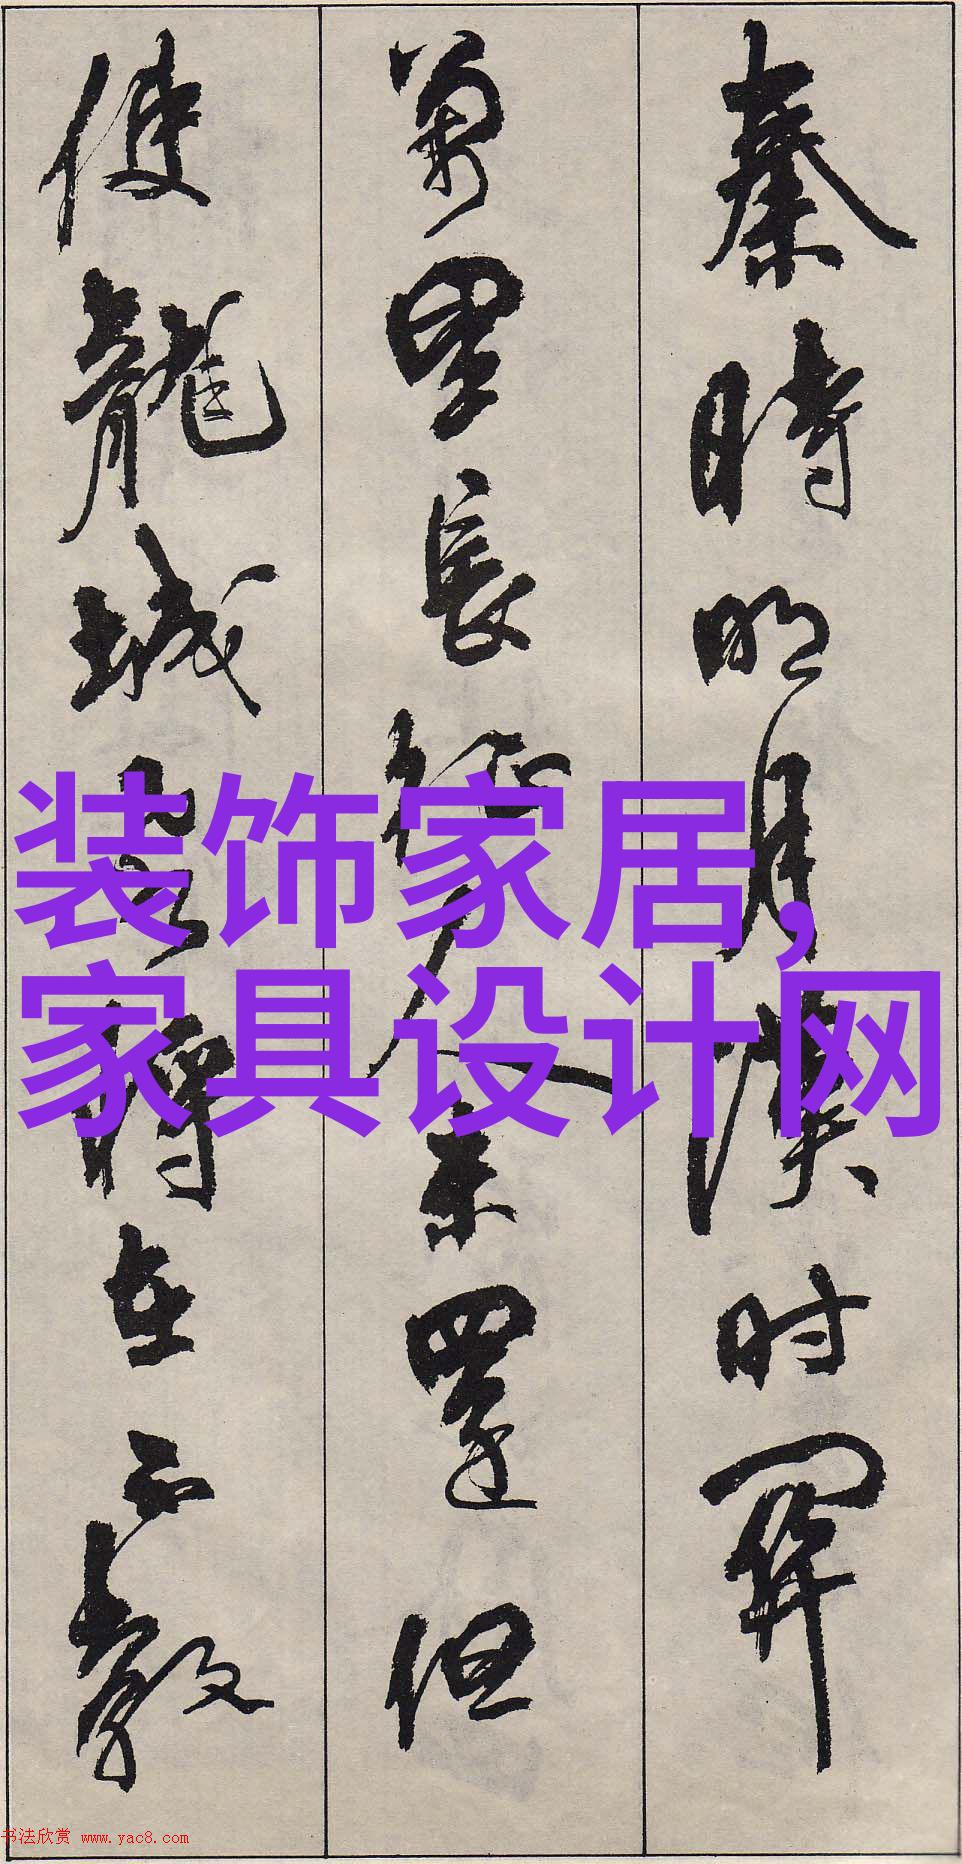 秦時明月漢时関
萬里長征人未還但
使龍城飛將在不教
装饰家居,
家具设计网
书法欣赏 www.yac8.com